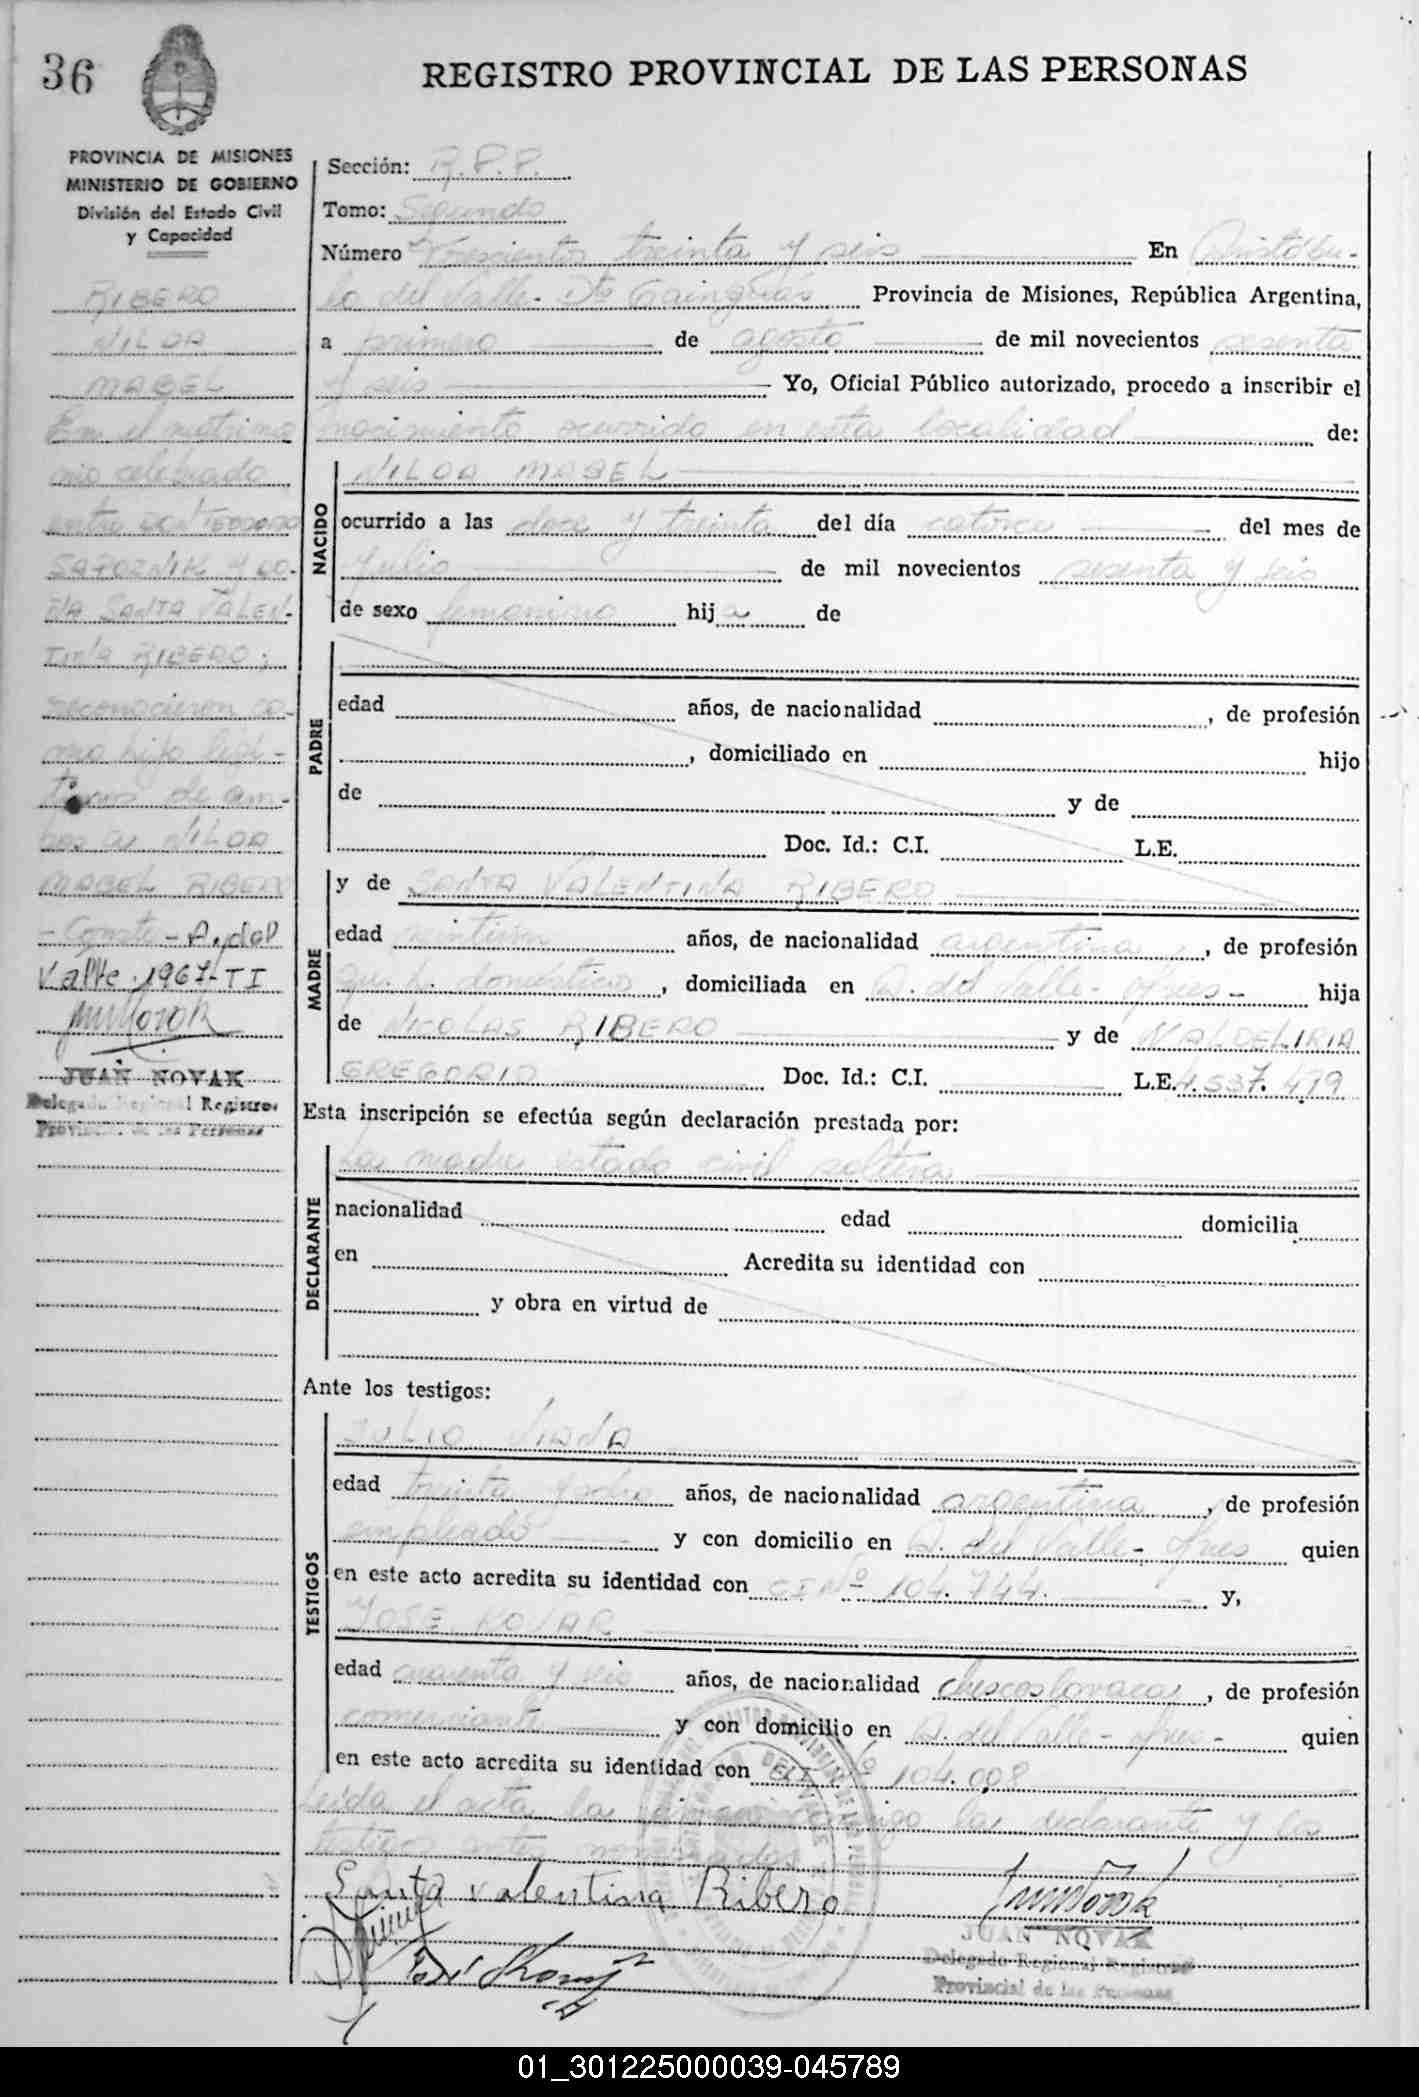 36
REGISTRO PROVINCIAL DE LAS PERSONAS
PROVINCIA DE MISIONES
MINISTERIO DE GOBIERNO
División del Estado Civil
y Capacidad
RIBERO
NILDA
MABEL
En el matrimo
nio celebrado
entre DON TEODORO
SAPOZNIK y DO-
ÑA SANTA VALEN-
TINA RIBERO;
reconocieron co-
mo hijo legí-
timo de am-
bos a NILDA
MABEL RIBERO
- Conste - A. del
Valle 1967- T I
JUAN NOVAK
Delegado Regional Registro
Provincial de las Personas
Sección: R.P.P.
Tomo: Segundo
Número Trescientos treinta y seis En Aristóbu-
lo del Valle - Dto Cainguás Provincia de Misiones, República Argentina,
a primero de agosto de mil novecientos sesenta
y seis Yo, Oficial Público autorizado, procedo a inscribir el
nacimiento ocurrido en esta localidad de:
NACIDO
NILDA MABEL
ocurrido a las doce y treinta del día catorce del mes de
julio de mil novecientos sesenta y seis
de sexo femenino hija de
PADRE
edad años, de nacionalidad , de profesión
, domiciliado en hijo
de y de
Doc. Id.: C.I. L.E.
MADRE
y de SANTA VALENTINA RIBERO
edad veintiún años, de nacionalidad argentina , de profesión
qu. h. domésticos , domiciliada en A. del Valle - Mnes - hija
de NICOLAS RIBERO y de VALDELIRIA
GREGORIO Doc. Id.: C.I. L.E. 4.537.419
Esta inscripción se efectúa según declaración prestada por:
DECLARANTE
La madre estado civil soltera
nacionalidad edad domicilia
en Acredita su identidad con
y obra en virtud de
Ante los testigos:
TESTIGOS
JULIO VIANA
edad treinta y ocho años, de nacionalidad argentina , de profesión
empleado y con domicilio en A. del Valle - Mnes quien
en este acto acredita su identidad con CI Nº 104.744. y,
JOSE KOVAR
edad cuarenta y seis años, de nacionalidad checoslovaca , de profesión
comerciante y con domicilio en A. del Valle - Mnes - quien
en este acto acredita su identidad con CI Nº 104.008
Leída el acta la firman conmigo la declarante y los
testigos antes nombrados
Santa Valentina Ribero
José Kovar
JUAN NOVAK
Delegado Regional Registro
Provincial de las Personas
01_301225000039-045789